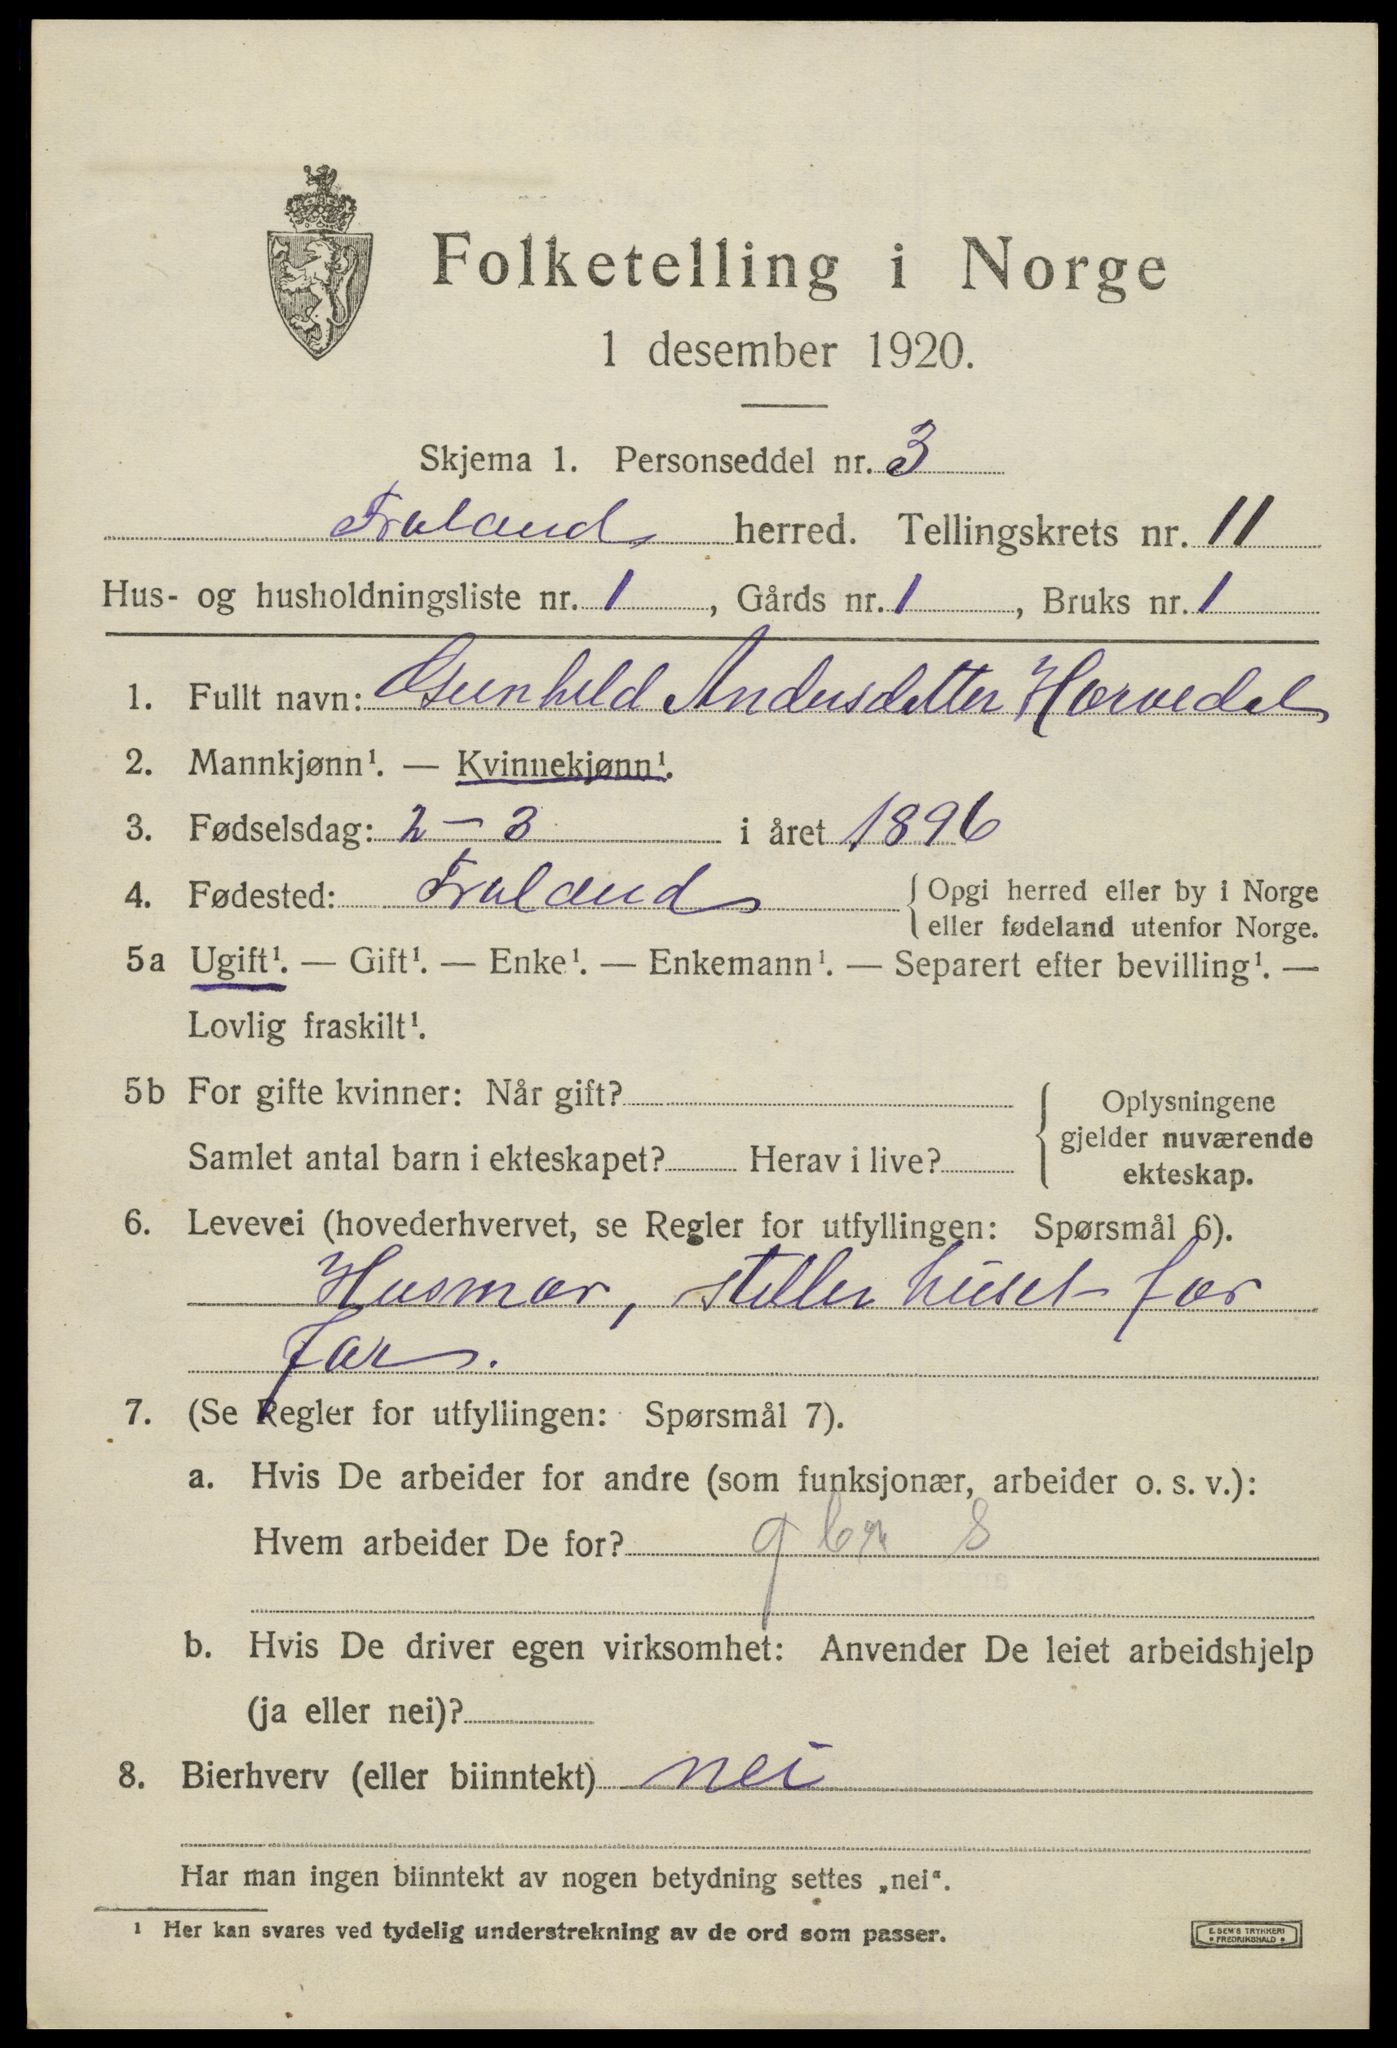 Folketelling i Norge
1 desember 1920.
Skjema 1. Personseddel nr. 3
Froland herred. Tellingskrets nr. 11
Hus- og husholdningsliste nr. 1, Gårds nr. 1, Bruks nr. 1
1. Fullt navn: Gunhild Andersdatter Hørvedal
2. Mannkjønn¹. — Kvinnekjønn¹.
3. Fødselsdag: 2 - 3 i året 1896
4. Fødested: Froland { Opgi herred eller by i Norge
eller fødeland utenfor Norge.
5a Ugift¹. — Gift¹. — Enke¹. — Enkemann¹. — Separert efter bevilling¹. —
Lovlig fraskilt¹.
5b For gifte kvinner: Når gift?
Samlet antal barn i ekteskapet? Herav i live?
Oplysningene
gjelder nuværende
ekteskap.
6. Levevei (hovederhvervet, se Regler for utfyllingen: Spørsmål 6).
Husmor, steller huset for
far.
7. (Se Regler for utfyllingen: Spørsmål 7).
a. Hvis De arbeider for andre (som funksjonær, arbeider o. s. v.):
Hvem arbeider De for?
b. Hvis De driver egen virksomhet: Anvender De leiet arbeidshjelp
(ja eller nei)?
8. Bierhverv (eller biinntekt) nei
Har man ingen biinntekt av nogen betydning settes „nei“.
¹ Her kan svares ved tydelig understrekning av de ord som passer.
E. SEM'S TRYKKERI
• FREDRIKSHALD •